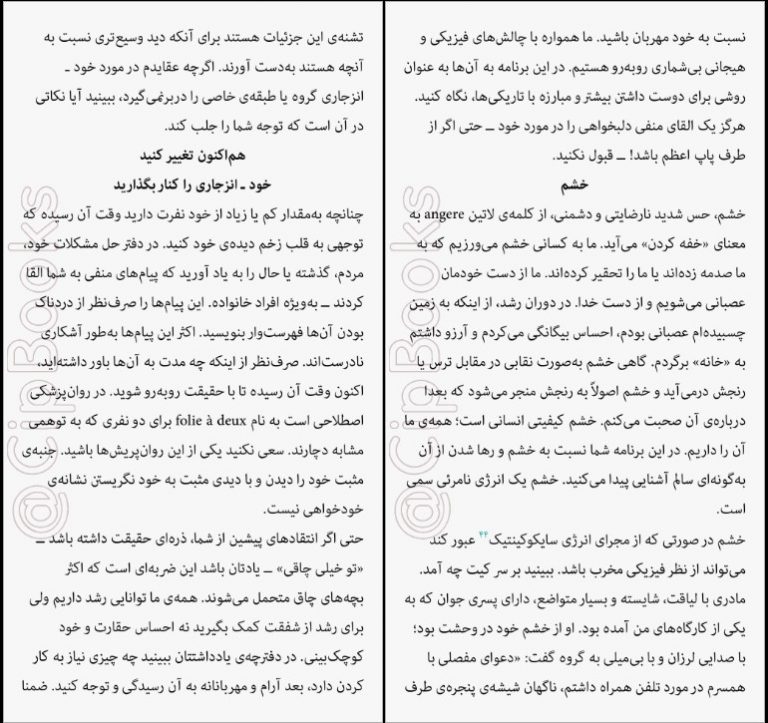 تشنه‌ی این جزئیات هستند برای آنکه دید وسیع‌تری نسبت به
آنچه هستند به‌دست آورند. اگرچه عقایدم در مورد خود ـ
انزجاری گروه یا طبقه‌ی خاصی را دربرنمی‌گیرد، ببینید آیا نکاتی
در آن است که توجه شما را جلب کند.
هم‌اکنون تغییر کنید
خود ـ انزجاری را کنار بگذارید
چنانچه به‌مقدار کم یا زیاد از خود نفرت دارید وقت آن رسیده که
توجهی به قلب زخم دیده‌ی خود کنید. در دفتر حل مشکلات خود،
مردم، گذشته یا حال را به یاد آورید که پیام‌های منفی به شما القا
کردند ــ به‌ویژه افراد خانواده. این پیام‌ها را صرف‌نظر از دردناک
بودن آن‌ها فهرست‌وار بنویسید. اکثر این پیام‌ها به‌طور آشکاری
نادرست‌اند. صرف‌نظر از اینکه چه مدت به آن‌ها باور داشته‌اید،
اکنون وقت آن رسیده تا با حقیقت روبه‌رو شوید. در روان‌پزشکی
اصطلاحی است به نام folie à deux برای دو نفری که به توهمی
مشابه دچارند. سعی نکنید یکی از این روان‌پریش‌ها باشید. جنبه‌ی
مثبت خود را دیدن و با دیدی مثبت به خود نگریستن نشانه‌ی
خودخواهی نیست.
حتی اگر انتقادهای پیشین از شما، ذره‌ای حقیقت داشته باشد ــ
«تو خیلی چاقی» ــ یادتان باشد این ضربه‌ای است که اکثر
بچه‌های چاق متحمل می‌شوند. همه‌ی ما توانایی رشد داریم ولی
برای رشد از شفقت کمک بگیرید نه احساس حقارت و خود
کوچک‌بینی. در دفترچه‌ی یادداشتتان ببینید چه چیزی نیاز به کار
کردن دارد، بعد آرام و مهربانانه به آن رسیدگی و توجه کنید. ضمنا
نسبت به خود مهربان باشید. ما همواره با چالش‌های فیزیکی و
هیجانی بی‌شماری روبه‌رو هستیم. در این برنامه به آن‌ها به عنوان
روشی برای دوست داشتن بیشتر و مبارزه با تاریکی‌ها، نگاه کنید.
هرگز یک القای منفی دلبخواهی را در مورد خود ــ حتی اگر از
طرف پاپ اعظم باشد! ــ قبول نکنید.
خشم
خشم، حس شدید نارضایتی و دشمنی، از کلمه‌ی لاتین angere به
معنای «خفه کردن» می‌آید. ما به کسانی خشم می‌ورزیم که به
ما صدمه زده‌اند یا ما را تحقیر کرده‌اند. ما از دست خودمان
عصبانی می‌شویم و از دست خدا. در دوران رشد، از اینکه به زمین
چسبیده‌ام عصبانی بودم، احساس بیگانگی می‌کردم و آرزو داشتم
به «خانه» برگردم. گاهی خشم به‌صورت نقابی در مقابل ترس یا
رنجش درمی‌آید و خشم اصولاً به رنجش منجر می‌شود که بعدا
درباره‌ی آن صحبت می‌کنم. خشم کیفیتی انسانی است؛ همه‌ی ما
آن را داریم. در این برنامه شما نسبت به خشم و رها شدن از آن
به‌گونه‌ای سالم آشنایی پیدا می‌کنید. خشم یک انرژی نامرئی سمی
است.
خشم در صورتی که از مجرای انرژی سایکوکینتیک۴۴ عبور کند
می‌تواند از نظر فیزیکی مخرب باشد. ببینید بر سر کیت چه آمد.
مادری با لیاقت، شایسته و بسیار متواضع، دارای پسری جوان که به
یکی از کارگاه‌های من آمده بود. او از خشم خود در وحشت بود؛
با صدایی لرزان و با بی‌میلی به گروه گفت: «دعوای مفصلی با
همسرم در مورد تلفن همراه داشتم، ناگهان شیشه‌ی پنجره‌ی طرف